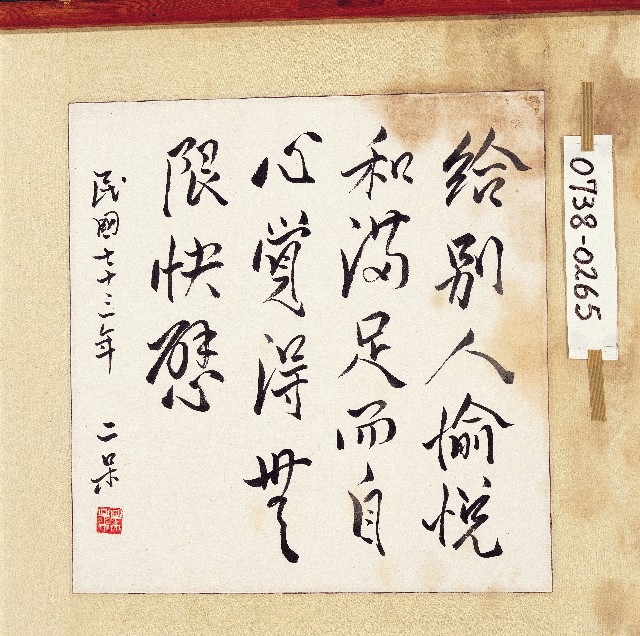 給別人愉悅
和滿足而自
心覺得無
限快慰
民國七十三年 二呆
0738-0265